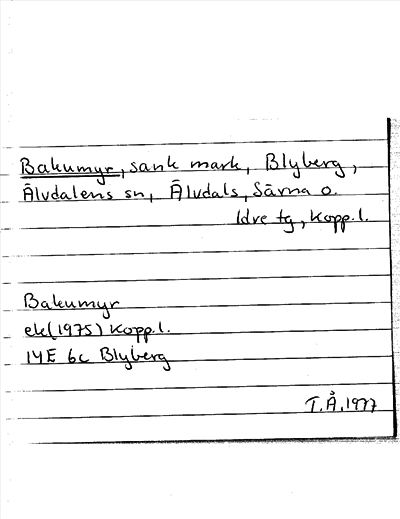 Bakumyr, sank mark, Blyberg,
Älvdalens sn, Älvdals, Särna o.
Idre tg, Kopp.l.
Bakumyr
ek(1975) Kopp.l.
14E 6c Blyberg
T.Å.1977